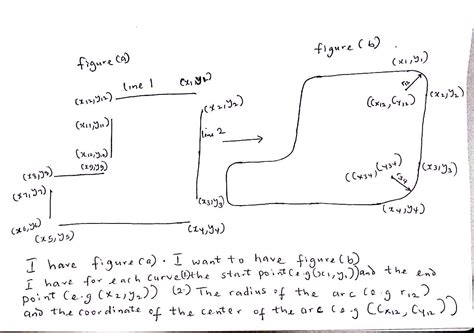 figure(a)
figure(b).
line 1
(x1,y1)
(x12,y12)
(x2,y2)
(x11,y11)
line 2
(x10,y10)
(x9,y9)
(x8,y8)
(x7,y7)
(x6,y6)
(x5,y5)
(x3,y3)
(x4,y4)
(x1,y1)
r12
(Cx12, Cy12)
(x2,y2)
((x34) (y34)
r34
(x3,y3)
(x4,y4)
I have figure(a). I want to have figure(b)
I have for each curve(1) the start point (e.g (x1,y1)) and the end
point (e.g (x2,y2)) (2.) The radius of the arc (e.g r12)
and the coordinate of the center of the arc (e.g (Cx12, Cy12))